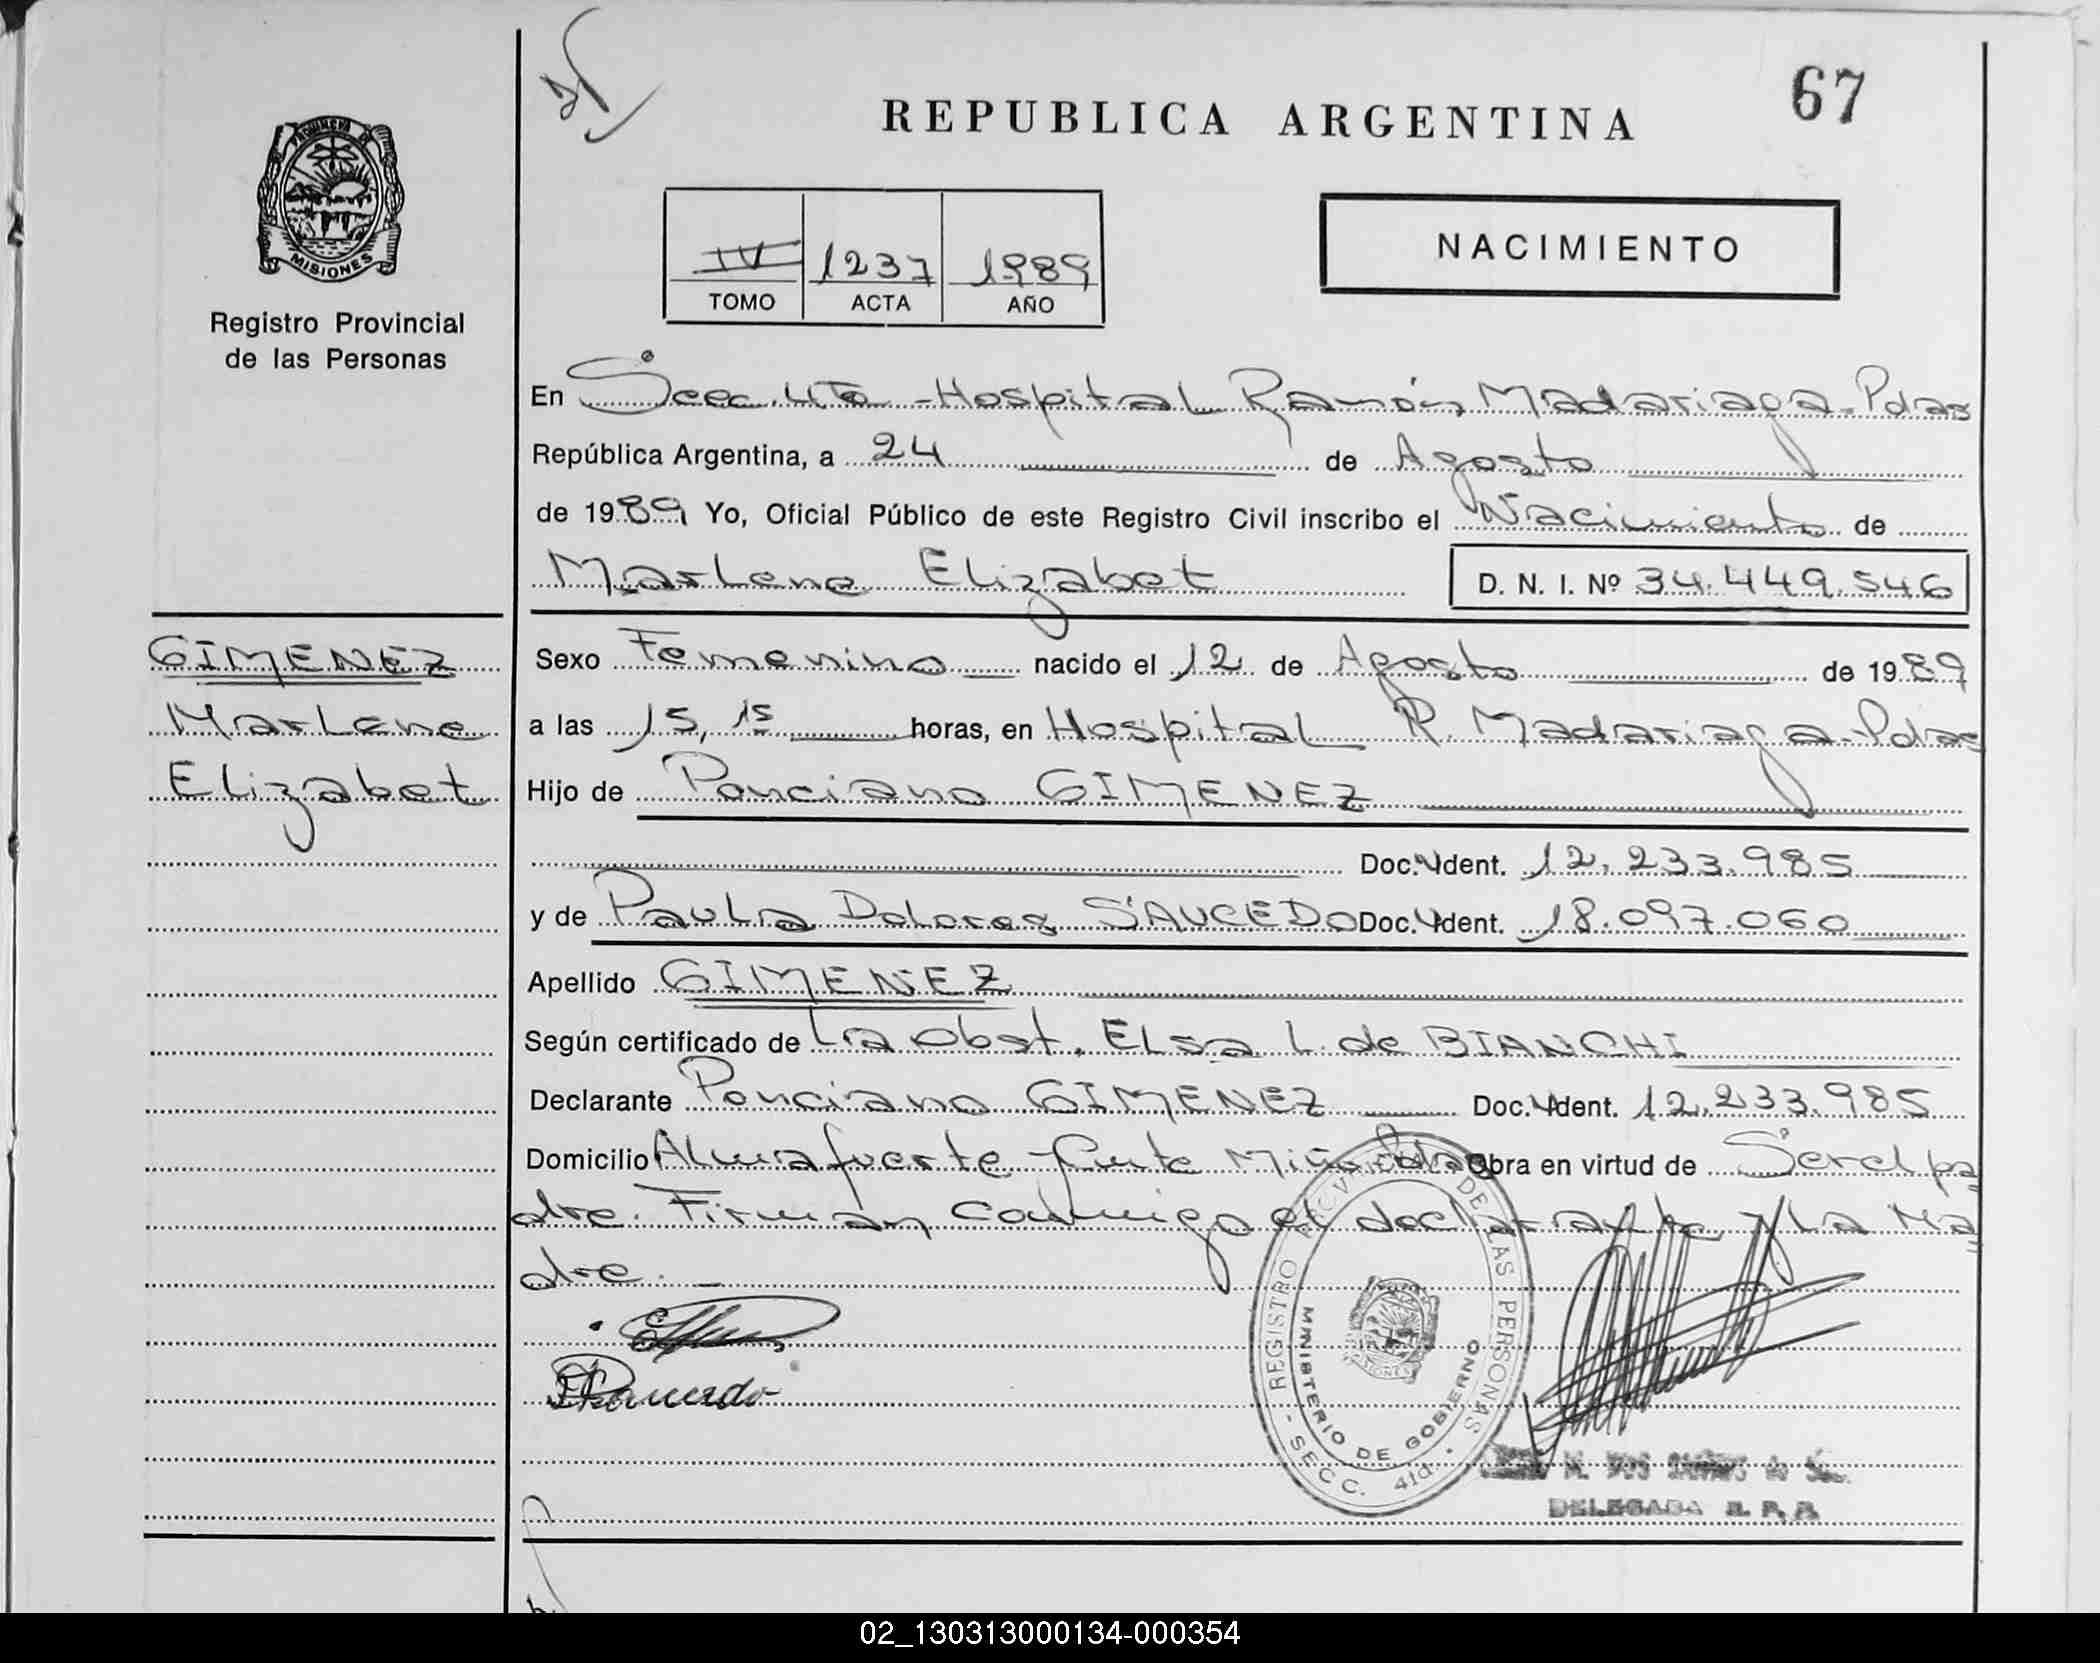 67
REPUBLICA ARGENTINA
PROVINCIA DE
MISIONES
Registro Provincial
de las Personas
IV 1237 1989
TOMO ACTA AÑO
NACIMIENTO
En Secc. 4ta - Hospital Ramón Madariaga - Pdas
República Argentina, a 24 de Agosto
de 1989 Yo, Oficial Público de este Registro Civil inscribo el Nacimiento de
Marlene Elizabet D. N. I. Nº 34.449.546
GIMENEZ
Marlene
Elizabet
Sexo Femenino nacido el 12 de Agosto de 1989
a las 15,15 horas, en Hospital R. Madariaga - Pdas
Hijo de Ponciano GIMENEZ
Doc. Ident. 12.233.985
y de Paula Dolores SAUCEDO Doc. Ident. 18.097.060
Apellido GIMENEZ
Según certificado de La Obst. Elsa L. de BIANCHI
Declarante Ponciano GIMENEZ Doc. Ident. 12.233.985
Domicilio Almafuerte Pdas Obra en virtud de Ser el pa
dre. Firman conmigo el declarante y la Ma
dre. -
REGISTRO PROVINCIAL DE LAS PERSONAS
MINISTERIO DE GOBIERNO
- SECC. 4ta. -
DELEGADA R. P. P.
02_130313000134-000354